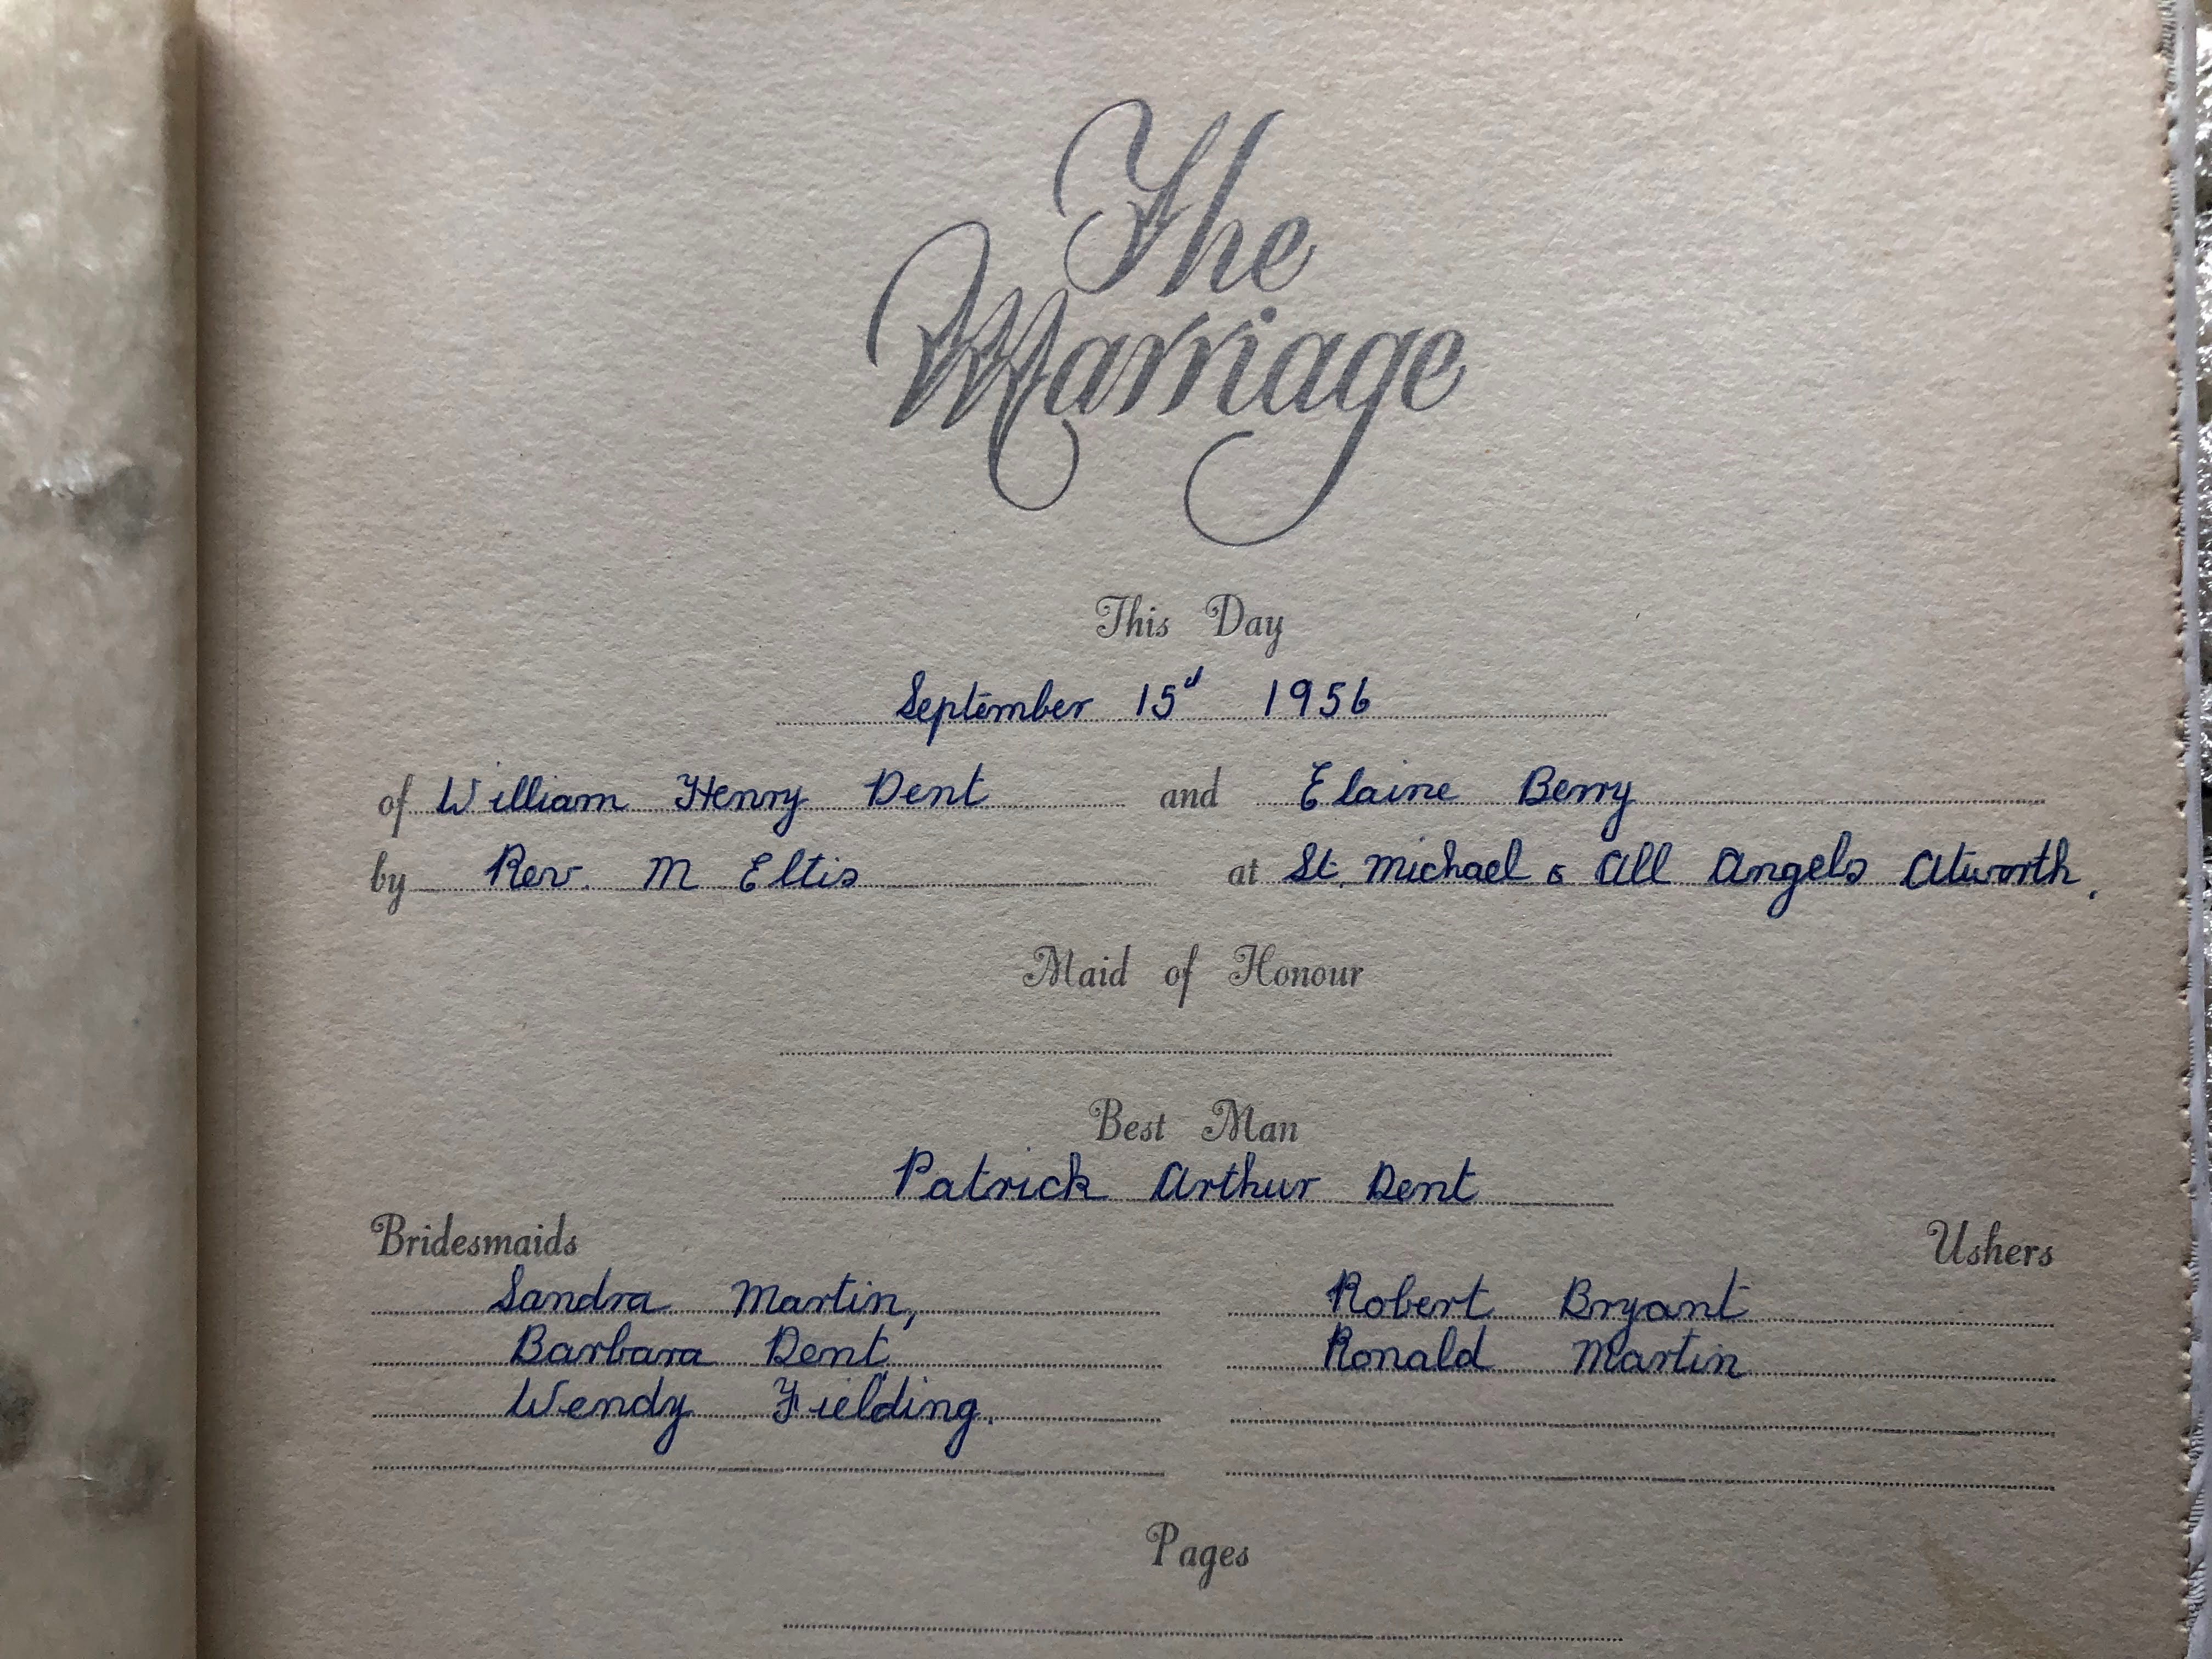 The
Marriage
This Day
September 15d 1956
of William Henry Dent and Elaine Berry
by Rev. M Eltis at St. Michael & All Angels Atworth.
Maid of Honour
Best Man
Patrick Arthur Dent
Bridesmaids Ushers
Sandra Martin, Robert Bryant
Barbara Dent Ronald Martin
Wendy Fielding.
Pages